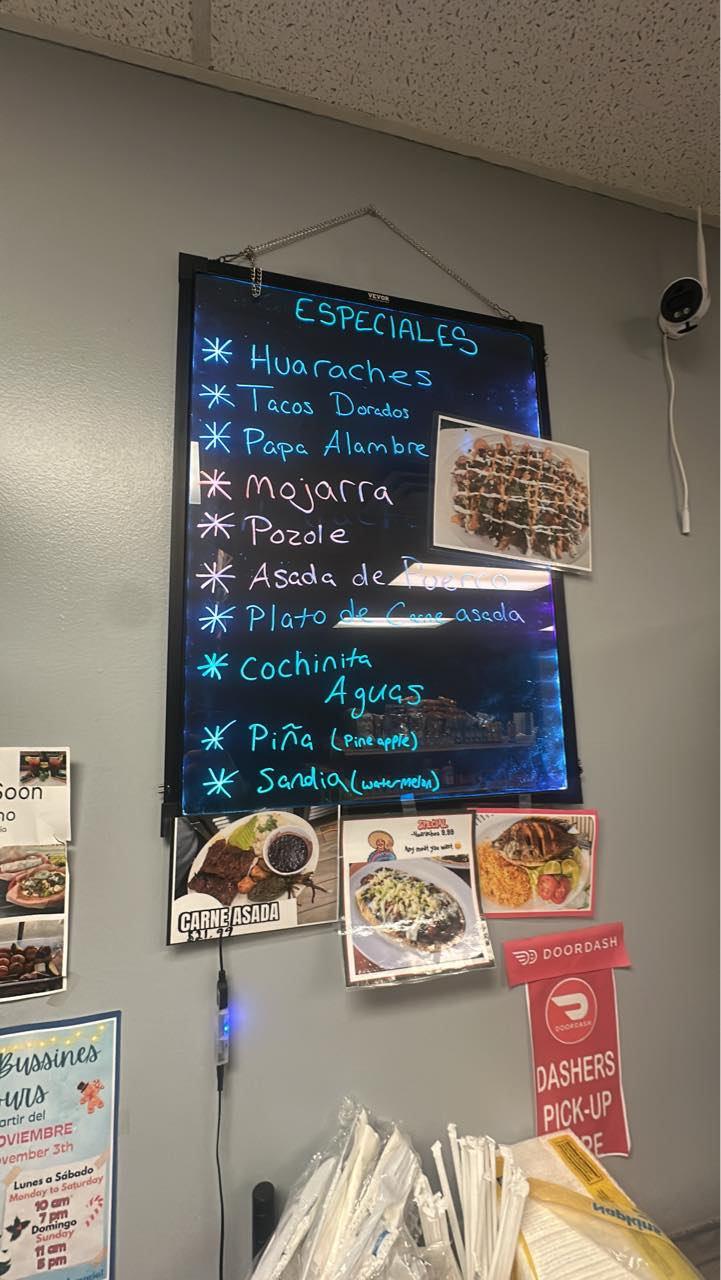 VEVOR
ESPECIALES
* Huaraches
* Tacos Dorados
* Papa Alambre
* Mojarra
* Pozole
* Asada de Puerco
* Plato de Carne asada
* Cochinita
Aguas
* Piña (Pineapple)
* Sandia (watermelon)
Soon
no
CARNE ASADA
$21.99
SPECIAL
Any meat you want
DOORDASH
DOORDASH
DASHERS
PICK-UP
Bussines
ours
artir del
OVIEMBRE
vember 3th
Lunes a Sábado
Monday to Saturday
10 am
7 pm
Domingo
Sunday
11 am
5 pm